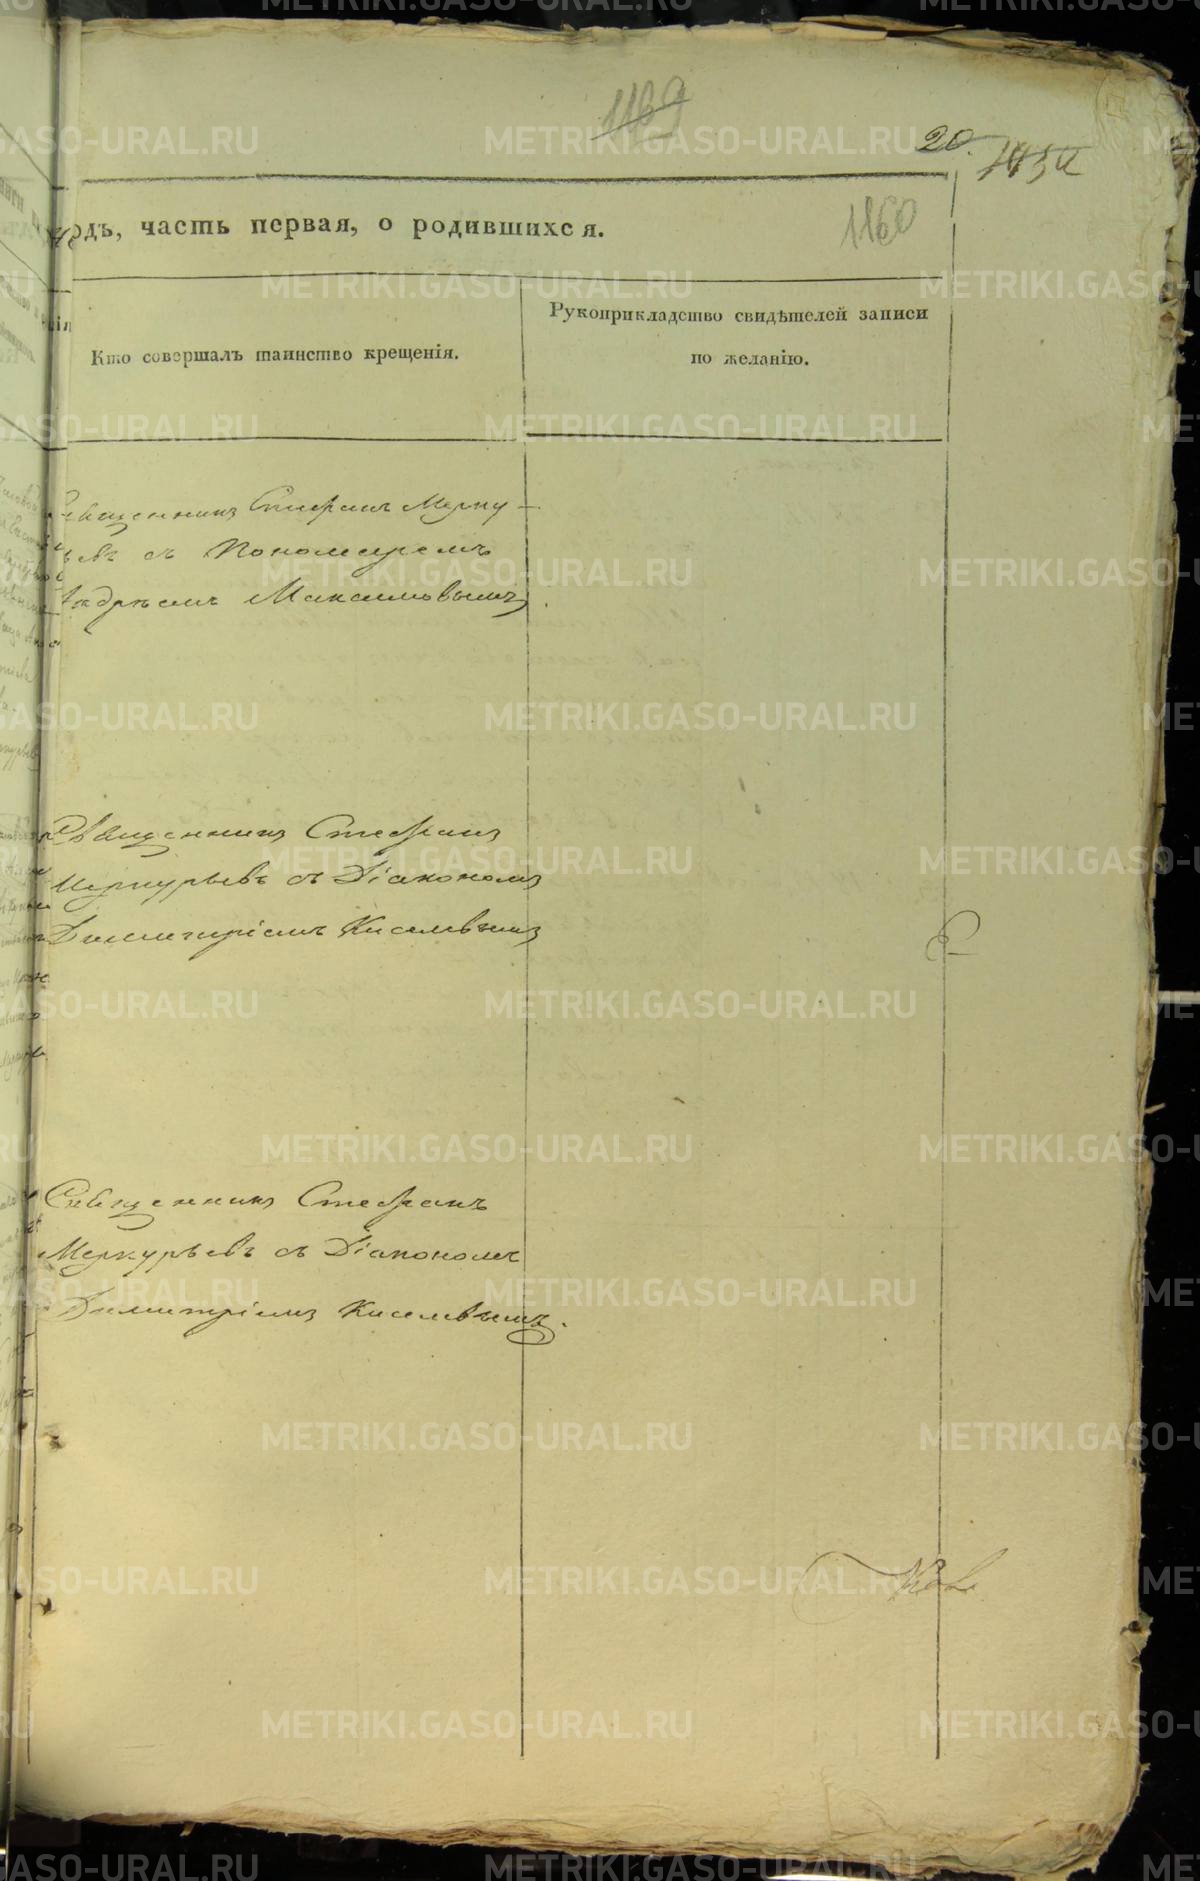 1169
20.
1160
одъ, часть первая, о родившихся.
Кто совершалъ таинство крещенія.
Рукоприкладство свидѣтелей записи
по желанію.
Священникъ Стефанъ Мерку-
ьевъ съ Пономаремъ
Андреемъ Максимовымъ.
Священникъ Стефанъ
Меркурьевъ съ Діакономъ
Димитріемъ Киселевымъ
Священникъ Стефанъ
Меркурьевъ съ Діакономъ
Димитріемъ Киселевымъ.
METRIKI.GASO-URAL.RU